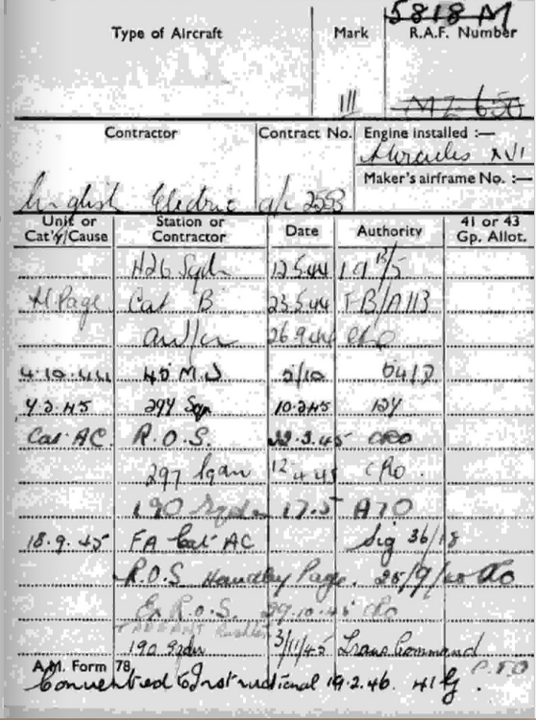 5818 M
Type of Aircraft Mark R.A.F. Number
III MZ 650
Contractor Contract No. Engine installed :—
Hercules XVI
Maker's airframe No. :—
English Electric a/c 2553
Unit or Cat'y/Cause Station or Contractor Date Authority 41 or 43 Gp. Allot.
426 Sqdn 12.5.44
H Page Cat B 23.5.44
26.9.44 CRO
4.10.44 45 M.U 2/10
10.2.45
Cat AC. R.O.S. 22.3.45 CRO
297 Sqdn 12.4.45 CRO.
190 Sqdn 17.5
18.9.45 FA Cat AC Sig 36/18
R.O.S Handley Page. 28/9/45 CRO
Ex R.O.S. 29.10.45 CRO
TARRANT Rushton
190 Sqdn 3/11/45 Trans Command
A.M. Form 78.
Converted to Instructional 19.2.46. 41 G.